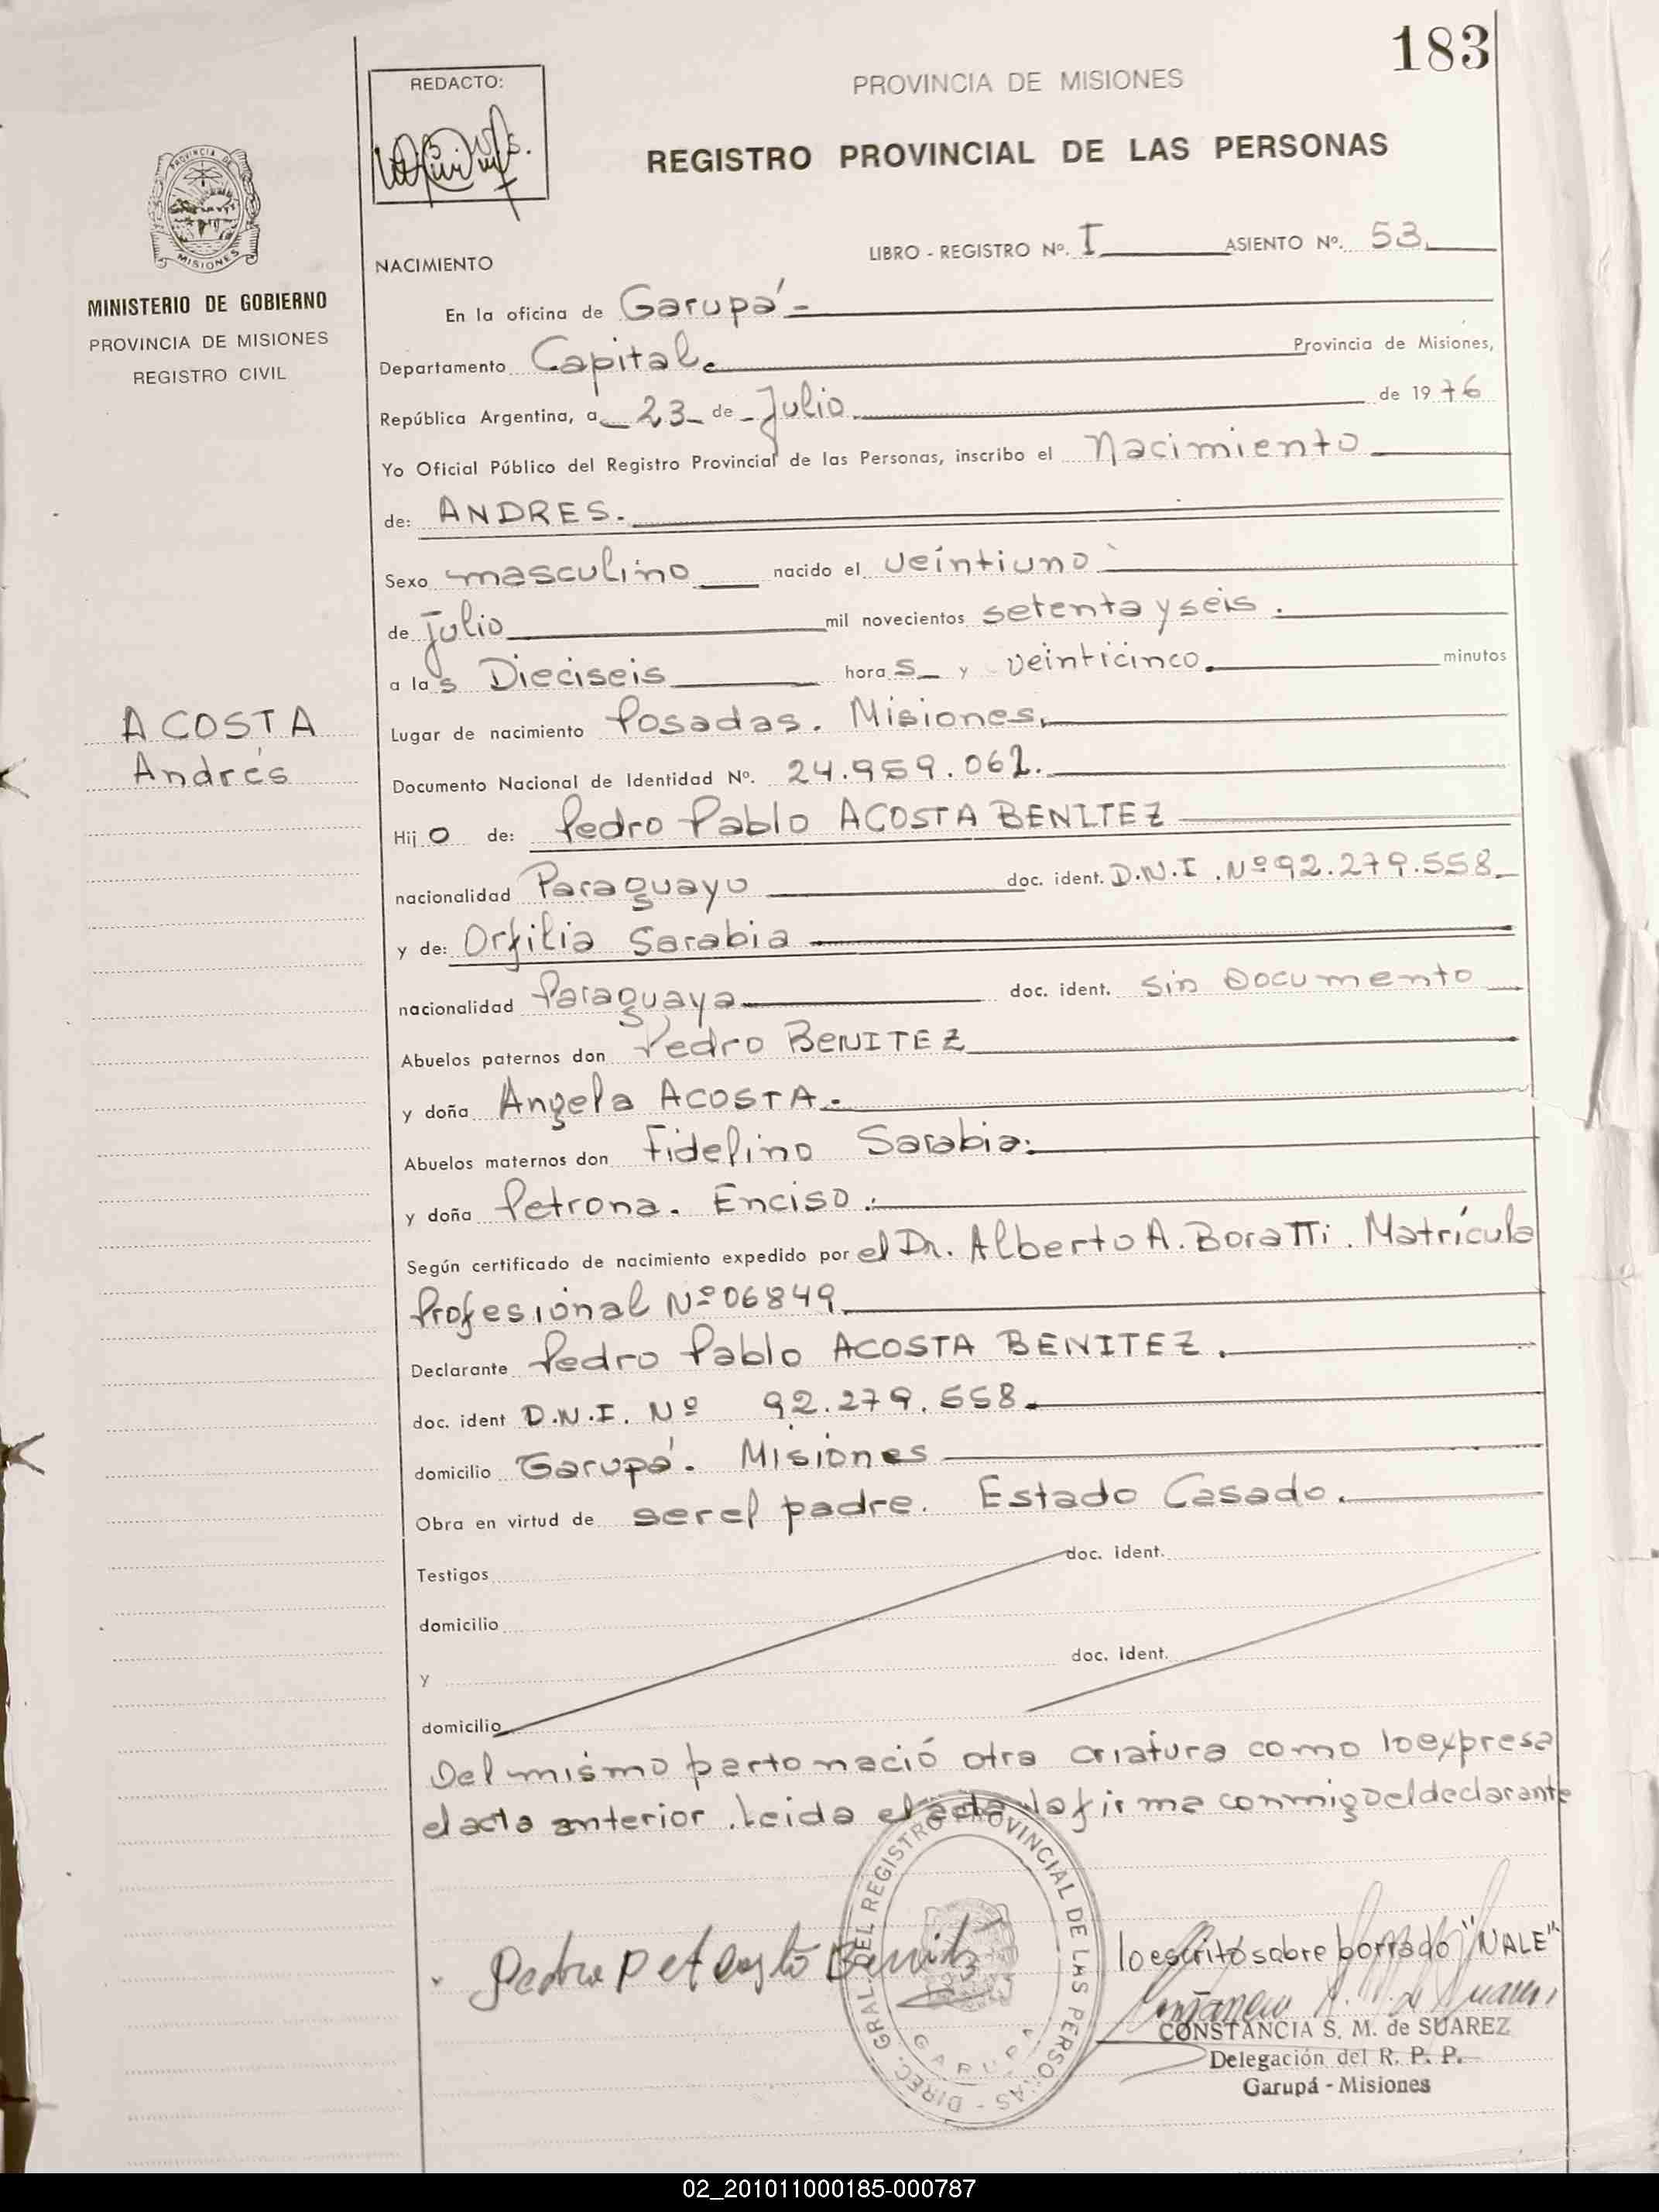 183
REDACTO:
PROVINCIA DE MISIONES
REGISTRO PROVINCIAL DE LAS PERSONAS
PROVINCIA DE
MISIONES
MINISTERIO DE GOBIERNO
PROVINCIA DE MISIONES
REGISTRO CIVIL
NACIMIENTO
LIBRO - REGISTRO Nº. I ASIENTO Nº. 53
En la oficina de Garupá
Departamento Capital. Provincia de Misiones,
República Argentina, a 23 de Julio de 1976
Yo Oficial Público del Registro Provincial de las Personas, inscribo el Nacimiento
de: ANDRES.
Sexo masculino nacido el veintiuno
de Julio mil novecientos setenta y seis.
a las Dieciseis horas y veinticinco. minutos
ACOSTA
Andrés
Lugar de nacimiento Posadas. Misiones.
Documento Nacional de Identidad Nº. 24.959.062.
Hijo de: Pedro Pablo ACOSTA BENITEZ
nacionalidad Paraguayo doc. ident. D.N.I. Nº 92.279.558
y de: Orfilia Sarabia
nacionalidad Paraguaya doc. ident. sin Documento
Abuelos paternos don Pedro BENITEZ
y doña Angela ACOSTA.
Abuelos maternos don Fidelino Sarabia.
y doña Petrona. Enciso.
Según certificado de nacimiento expedido por el Dr. Alberto A. Boratti. Matrícula
Profesional Nº 06849
Declarante Pedro Pablo ACOSTA BENITEZ.
doc. ident D.N.I. Nº 92.279.558.
domicilio Garupá. Misiones
Obra en virtud de ser el padre. Estado Casado.
Testigos doc. ident.
domicilio
y doc. ident.
domicilio
Del mismo parto nació otra criatura como lo expresa
el acta anterior. Leida el acta la firma conmigo el declarante
lo escrito sobre borrado "VALE"
DIREC. GRAL. DEL REGISTRO PROVINCIAL DE LAS PERSONAS -
GARUPA
CONSTANCIA S. M. de SUAREZ
Delegación del R. P. P.
Garupá - Misiones
02_201011000185-000787